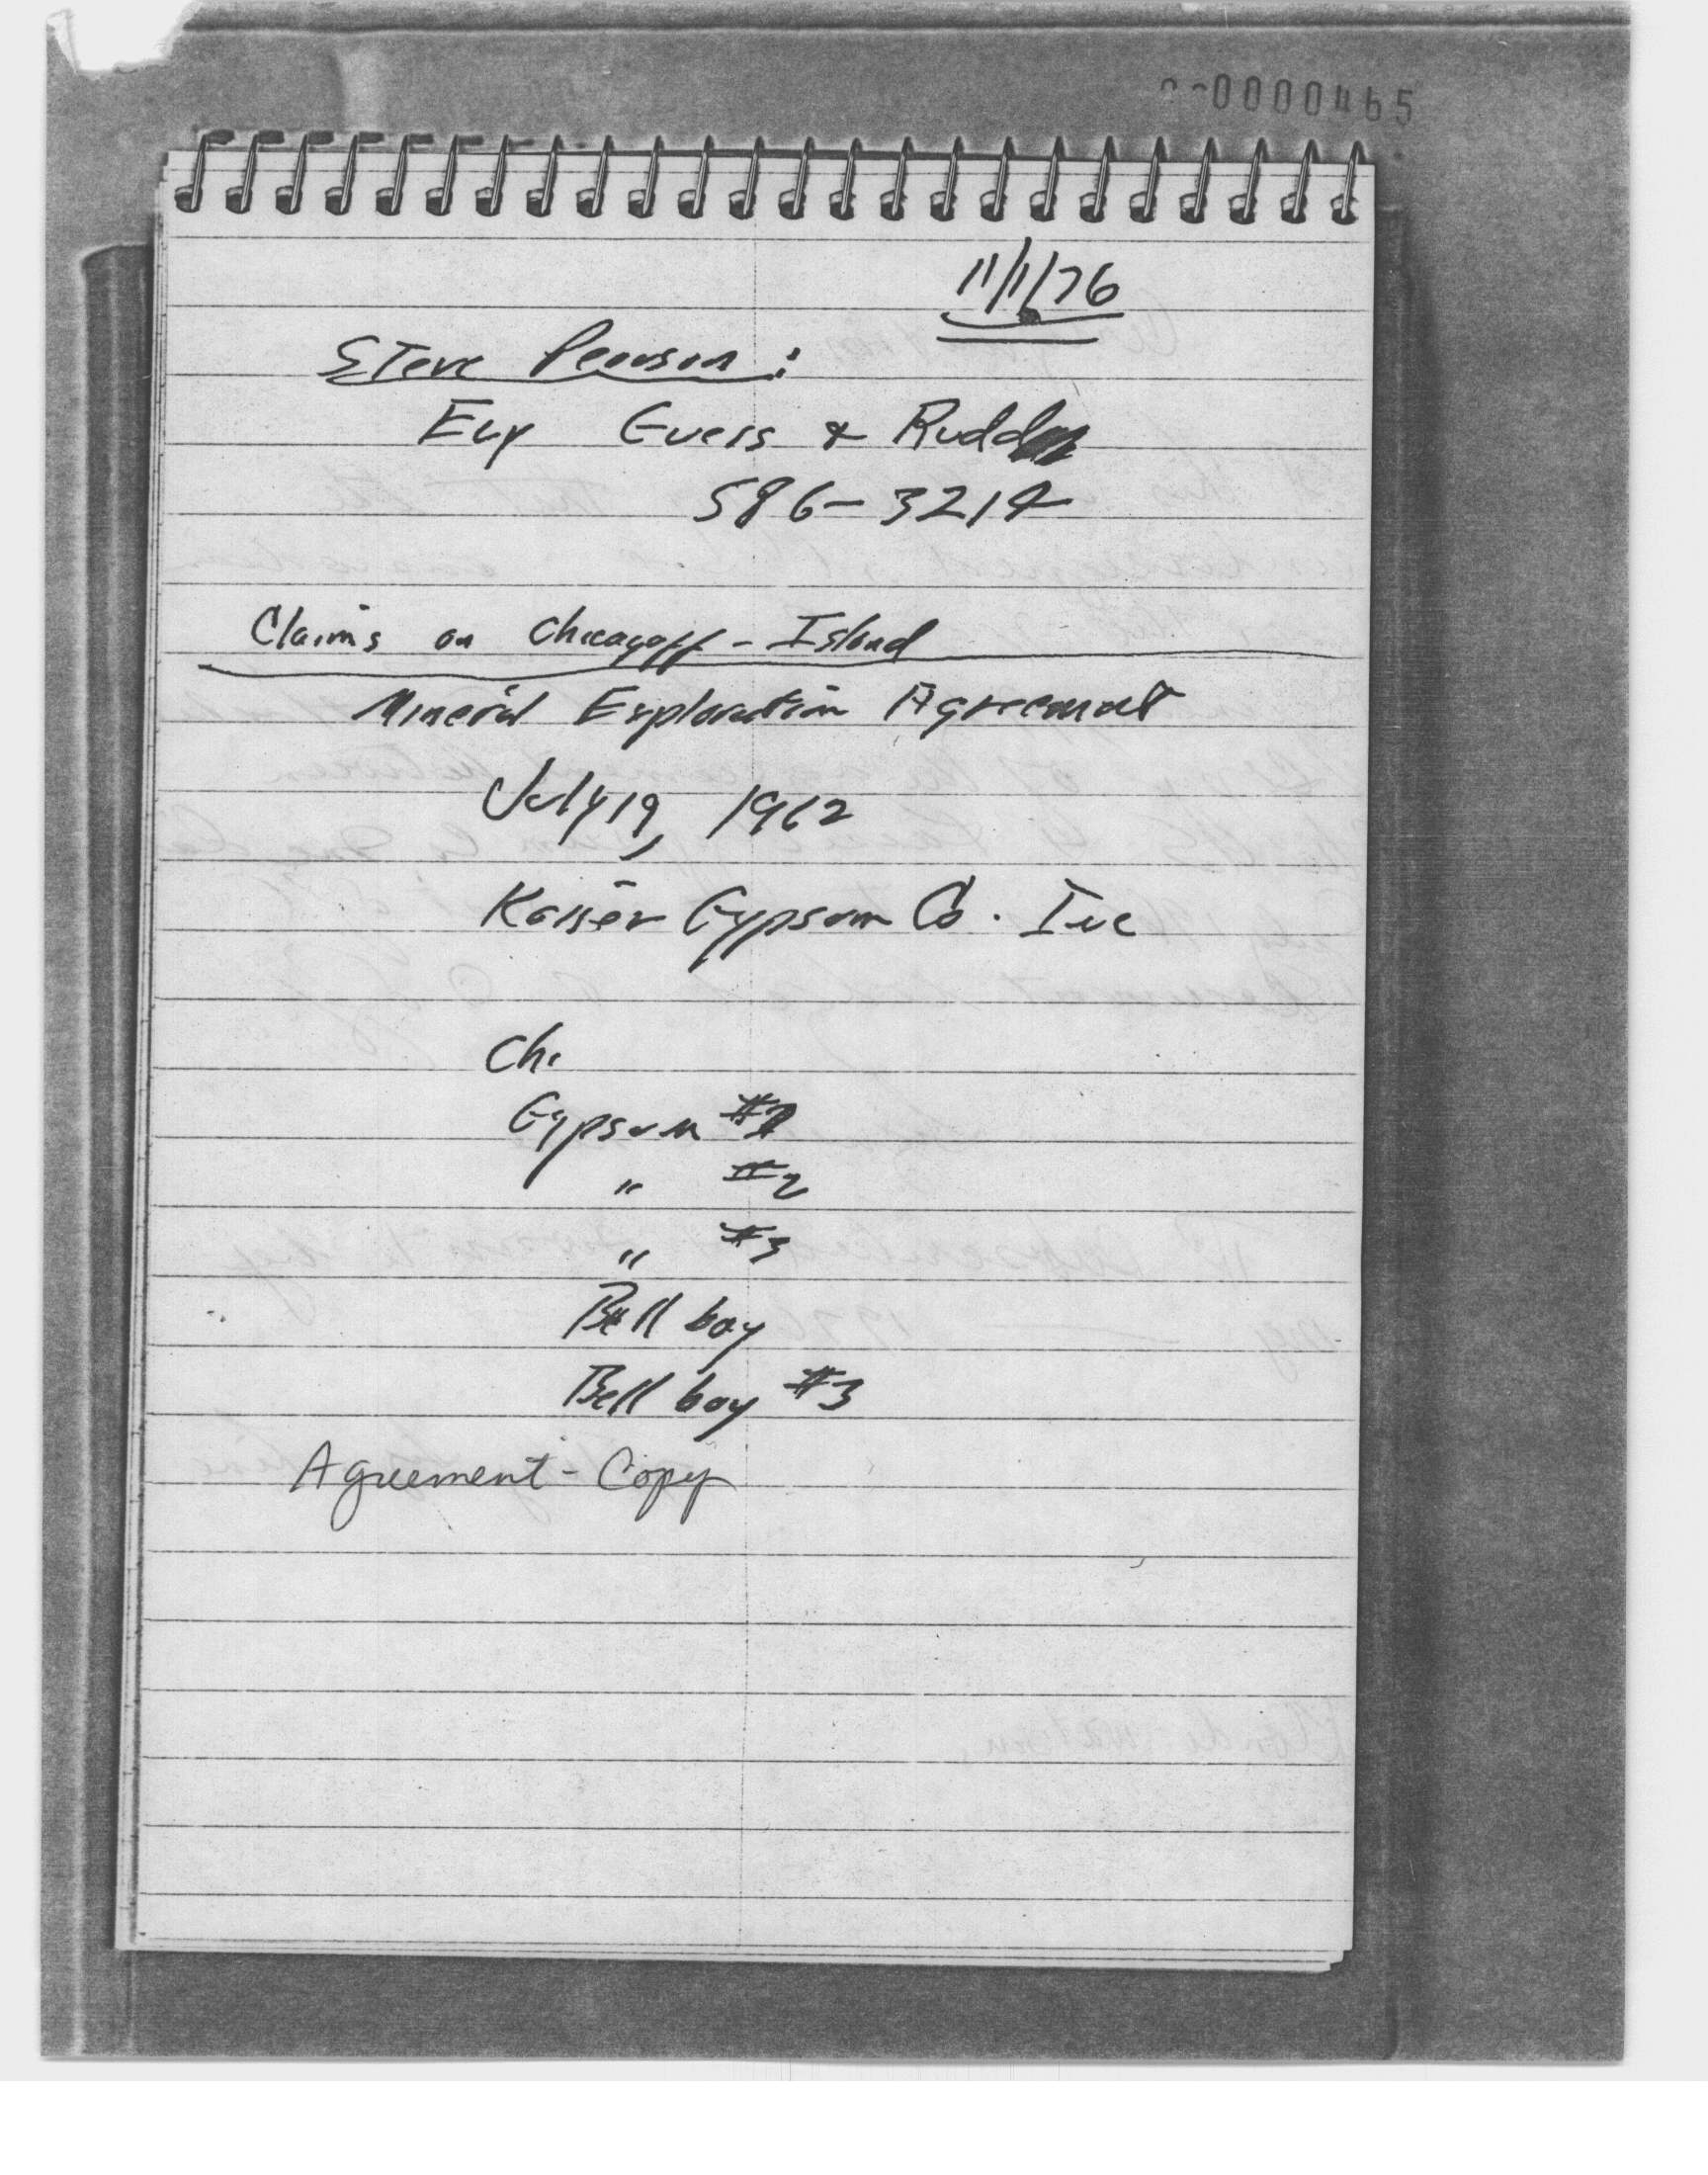 0000465
11/1/76
Steve Pearson:
Ely Guess & Rudd
586-3214
Claims on Chicagoff-Island
Mineral Exploration Agreement
July 19, 1962
Kaiser Gypsum Co. Inc
Chi
Gypsum #1
" #2
" #3
Bell boy
Bell boy #3
Agreement - Copy